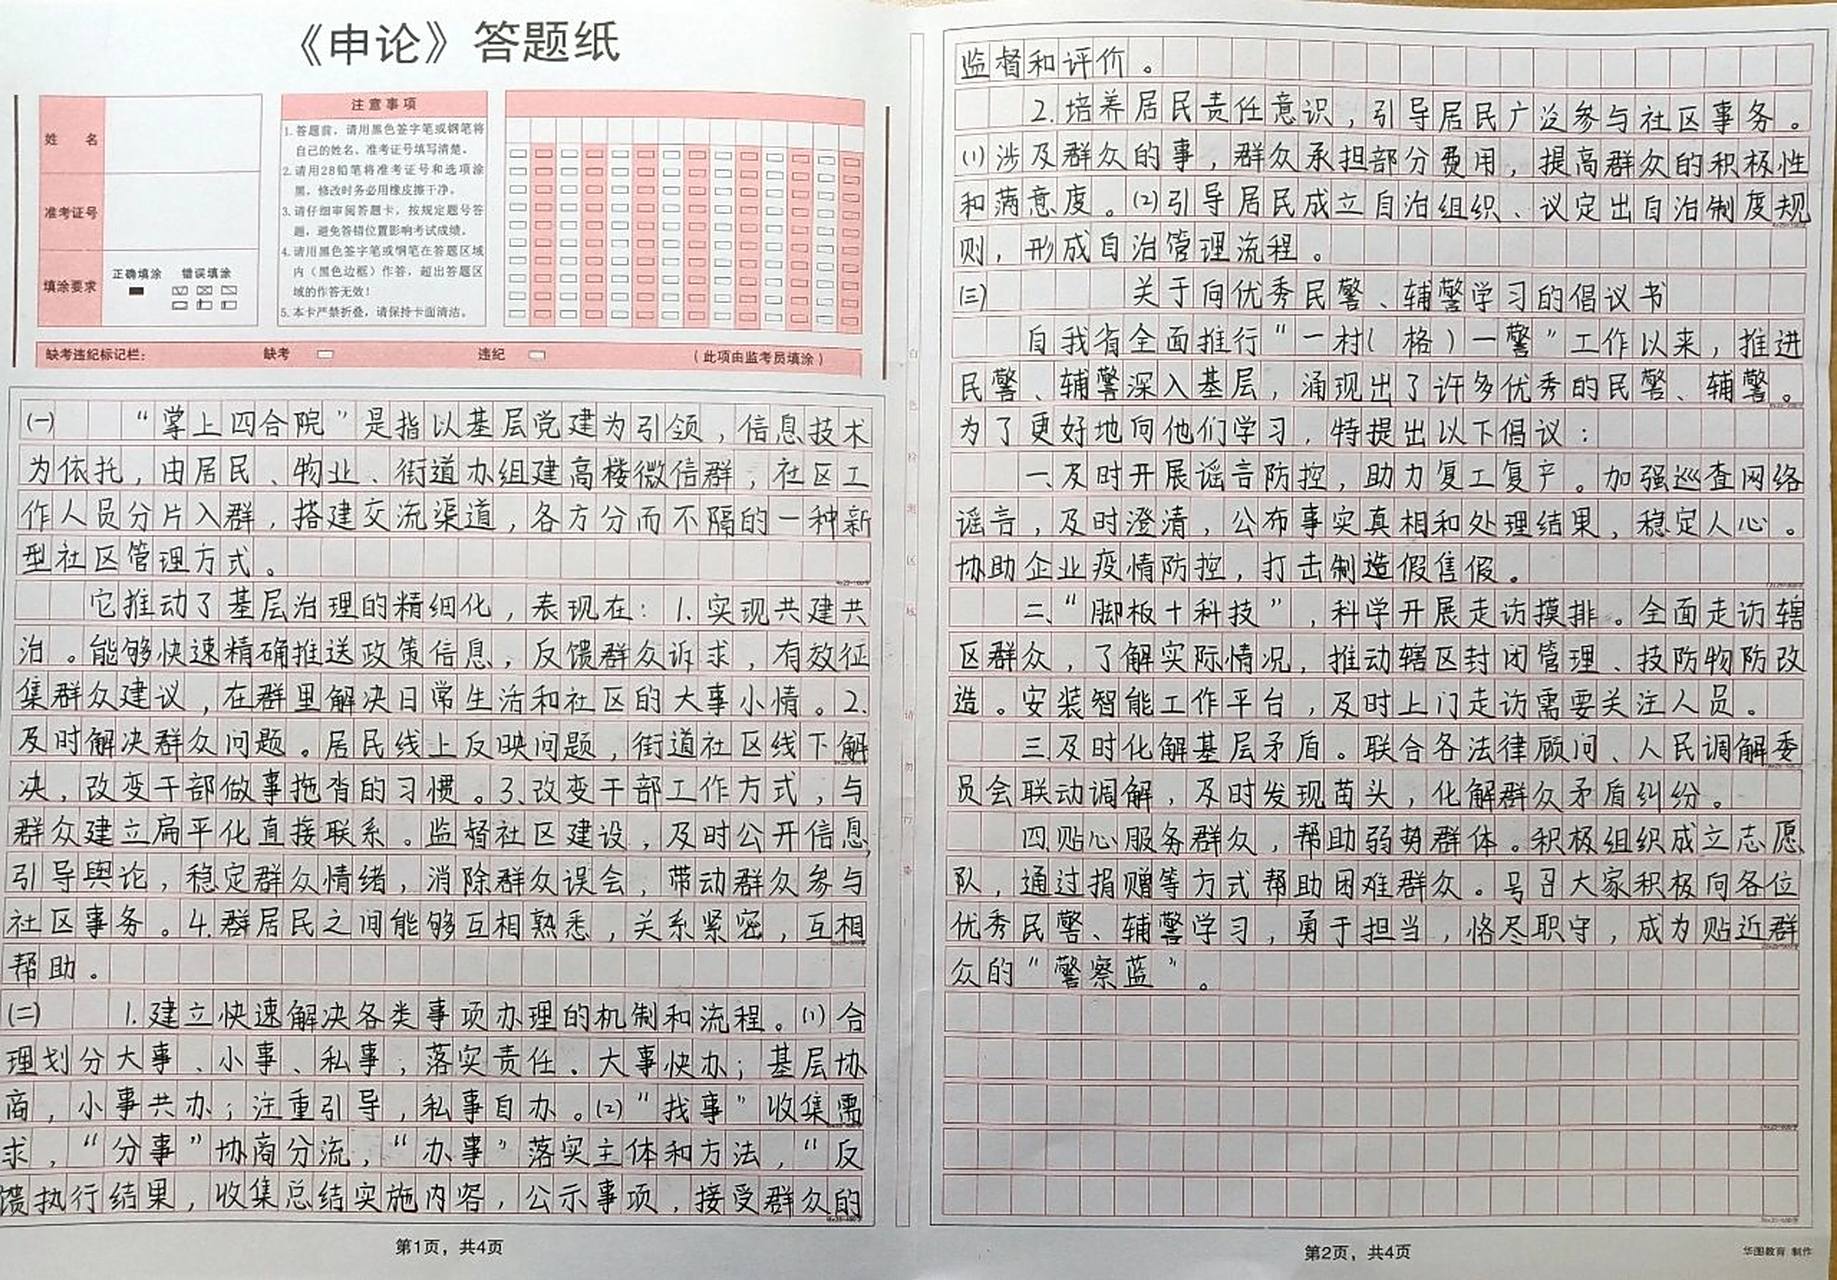 《申论》答题纸
姓 名
准考证号
填涂要求
正确填涂 错误填涂
注意事项
1.答题前，请用黑色签字笔或钢笔将
自己的姓名、准考证号填写清楚。
2.请用2B铅笔将准考证号和选项涂
黑，修改时务必用橡皮擦干净。
3.请仔细审阅答题卡，按规定题号答
题，避免答错位置影响考试成绩。
4.请用黑色签字笔或钢笔在答题区域
内（黑色边框）作答，超出答题区
域的作答无效！
5.本卡严禁折叠，请保持卡面清洁。
缺考违纪标记栏： 缺考 违纪 （此项由监考员填涂）
(一) “掌上四合院”是指以基层党建为引领，信息技术
为依托，由居民、物业、街道办组建高楼微信群，社区工
作人员分片入群，搭建交流渠道，各方分而不隔的一种新
型社区管理方式。
它推动了基层治理的精细化，表现在：1.实现共建共
治。能够快速精确推送政策信息，反馈群众诉求，有效征
集群众建议，在群里解决日常生活和社区的大事小情。2.
及时解决群众问题。居民线上反映问题，街道社区线下解
决，改变干部做事拖沓的习惯。3.改变干部工作方式，与
群众建立扁平化直接联系。监督社区建设，及时公开信息，
引导舆论，稳定群众情绪，消除群众误会，带动群众参与
社区事务。4.群居民之间能够互相熟悉，关系紧密，互相
帮助。
(二) 1.建立快速解决各类事项办理的机制和流程。(1)合
理划分大事、小事、私事，落实责任。大事快办；基层协
商，小事共办；注重引导，私事自办。(2)“找事”收集需
求，“分事”协商分流，“办事”落实主体和方法，“反
馈执行结果，收集总结实施内容，公示事项，接受群众的
第1页，共4页
监督和评价。
2.培养居民责任意识，引导居民广泛参与社区事务。
(1)涉及群众的事，群众承担部分费用，提高群众的积极性
和满意度。(2)引导居民成立自治组织、议定出自治制度规
则，形成自治管理流程。
(三) 关于向优秀民警、辅警学习的倡议书
自我省全面推行“一村（格）一警”工作以来，推进
民警、辅警深入基层，涌现出了许多优秀的民警、辅警。
为了更好地向他们学习，特提出以下倡议：
一、及时开展谣言防控，助力复工复产。加强巡查网络
谣言，及时澄清，公布事实真相和处理结果，稳定人心。
协助企业疫情防控，打击制造假售假。
二、“脚板+科技”，科学开展走访摸排。全面走访辖
区群众，了解实际情况，推动辖区封闭管理、技防物防改
造。安装智能工作平台，及时上门走访需要关注人员。
三、及时化解基层矛盾。联合各法律顾问、人民调解委
员会联动调解，及时发现苗头，化解群众矛盾纠纷。
四、贴心服务群众，帮助弱势群体。积极组织成立志愿
队，通过捐赠等方式帮助困难群众。号召大家积极向各位
优秀民警、辅警学习，勇于担当，恪尽职守，成为贴近群
众的“警察蓝”。
第2页，共4页
华图教育 制作